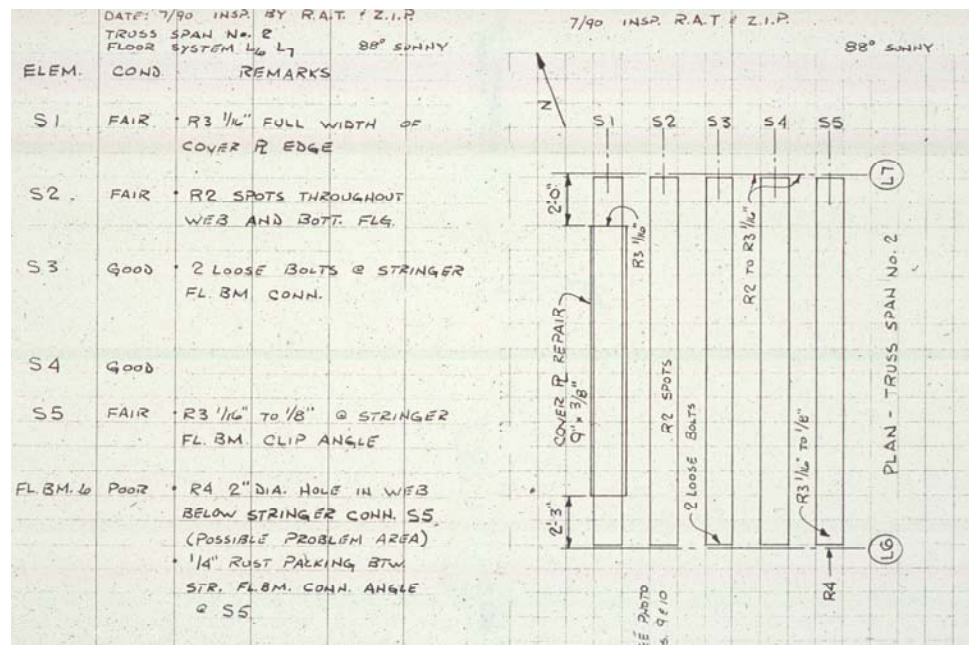 DATE: 7/90 INSP. BY R.A.T. & Z.I.P.
TRUSS SPAN No. 2
FLOOR SYSTEM L6 L7 88° SUNNY
ELEM. COND. REMARKS
S1 FAIR • R3 1/16" FULL WIDTH OF
COVER PL EDGE
S2. FAIR • R2 SPOTS THROUGHOUT
WEB AND BOTT. FLG.
S3 GOOD • 2 LOOSE BOLTS @ STRINGER
FL. BM. CONN.
S4 GOOD
S5 FAIR • R3 1/16" TO 1/8" @ STRINGER
FL. BM. CLIP ANGLE
FL. BM. 6 POOR • R4 2" DIA. HOLE IN WEB
BELOW STRINGER CONN. S5
(POSSIBLE PROBLEM AREA)
• 1/4" RUST PACKING BTW.
STR. FL. BM. CONN. ANGLE
@ S5
7/90 INSP. R.A.T & Z.I.P.
88° SUNNY
N
S1 S2 S3 S4 S5
L7
2'-0"
R3 1/16"
R2 TO R3 1/16"
COVER PL REPAIR
9" x 3/8"
R2 SPOTS
2 LOOSE BOLTS
R3 1/16" TO 1/8"
2'-3"
L6
R4
PLAN - TRUSS SPAN NO. 2
PHOTO
9 & 10